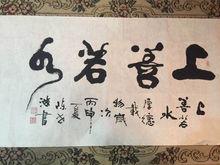 上善若水
上
善若
水
厚德
載
物歲
次
丙申
夏
陈
洪書